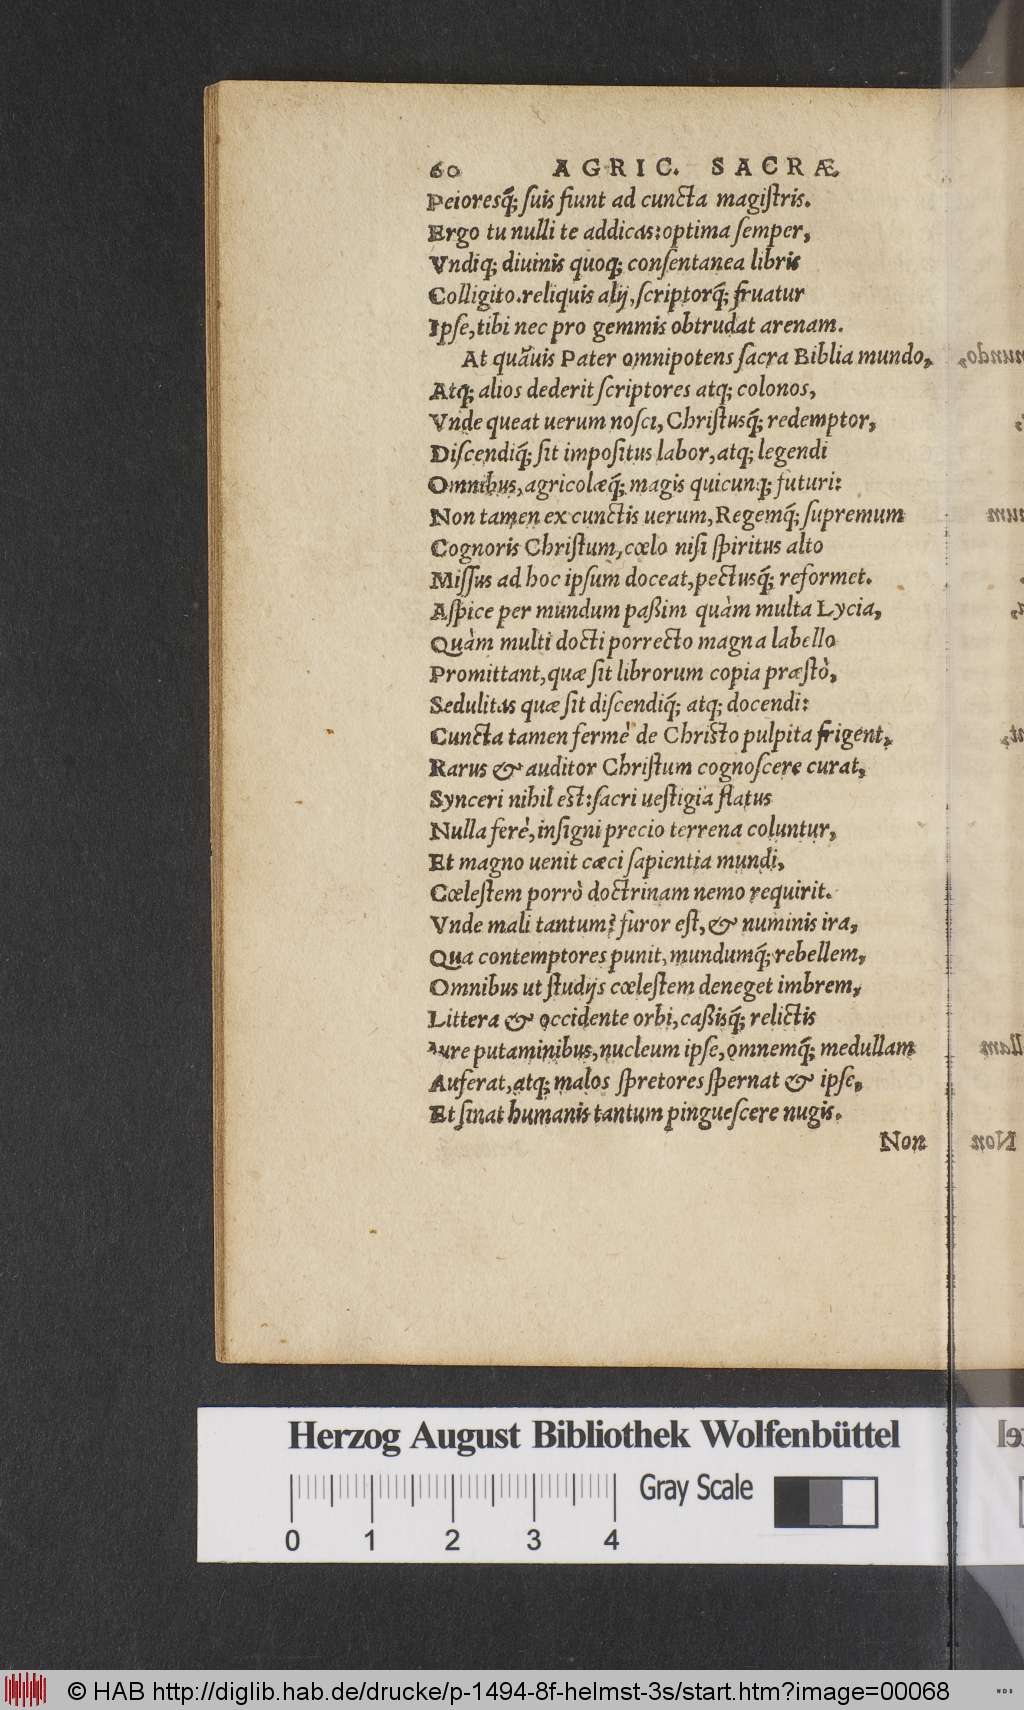 60 AGRIC. SACRÆ
Peioresq́; ſuis fiunt ad cuncta magiſtris.
Ergo tu nulli te addicas: optima ſemper,
Vndiq; diuinis quoq; conſentanea libris
Colligito. reliquis alij, ſcriptorq́; fruatur
Ipſe, tibi nec pro gemmis obtrudat arenam.
At quāuis Pater omnipotens ſacra Biblia mundo,
Atq; alios dederit ſcriptores atq; colonos,
Vnde queat uerum noſci, Chriſtusq́; redemptor,
Diſcendiq́; ſit impoſitus labor, atq; legendi
Omnibus, agricolæq́; magis quicunq; futuri:
Non tamen ex cunctis uerum, Regemq́; ſupremum
Cognoris Chriſtum, cœlo niſi ſpiritus alto
Miſſus ad hoc ipſum doceat, pectusq́; reformet.
Aſpice per mundum paßim quàm multa Lycia,
Quàm multi docti porrecto magna labello
Promittant, quæ ſit librorum copia præſtò,
Sedulitas quæ ſit diſcendiq́; atq; docendi:
Cuncta tamen fermè de Christo pulpita frigent,
Rarus & auditor Chriſtum cognoſcere curat,
Synceri nihil est: ſacri ueſtigia flatus
Nulla ferè, inſigni precio terrena coluntur,
Et magno uenit cæci ſapientia mundi,
Cœleſtem porrò doctrinam nemo requirit.
Vnde mali tantum? furor eſt, & numinis ira,
Qua contemptores punit, mundumq́; rebellem,
Omnibus ut ſtudijs cœleſtem deneget imbrem,
Littera & occidente orbi, caßisq́; relictis
Aure putaminibus, nucleum ipſe, omnemq́; medullam
Auferat, atq; malos ſpretores ſpernat & ipſe,
Et ſinat humanis tantum pingueſcere nugis.
Non
Herzog August Bibliothek Wolfenbüttel
Gray Scale
0 1 2 3 4
© HAB http://diglib.hab.de/drucke/p-1494-8f-helmst-3s/start.htm?image=00068